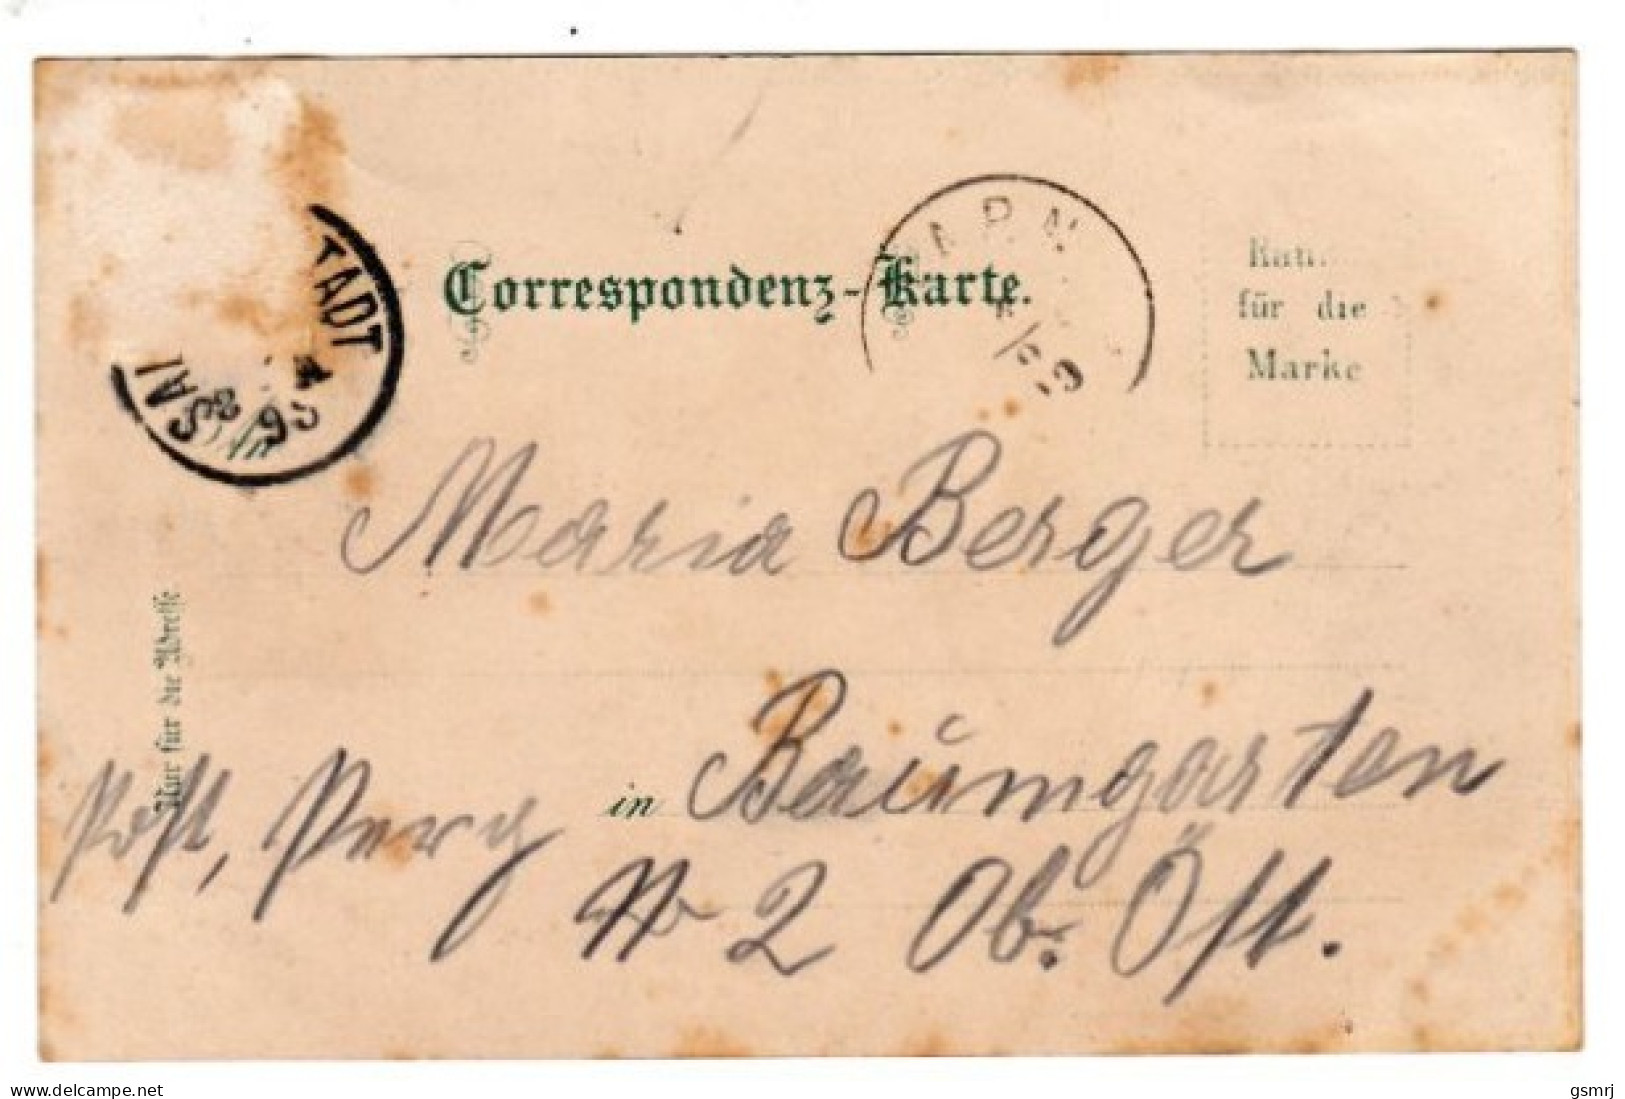 Correspondenz-Karte.
für die
Marke
TADT
Nur für die Adresse
Maria Berger
in Baumgarten
Post, Perg
No 2 Ob. Öst.
www.delcampe.net
gsmrj